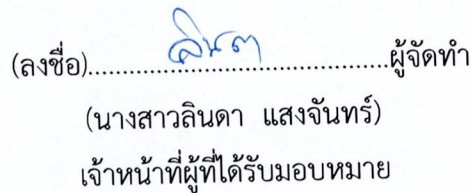 (ลงชื่อ)......ลินดา......ผู้จัดทำ
(นางสาวลินดา แสงจันทร์)
เจ้าหน้าที่ผู้ที่ได้รับมอบหมาย